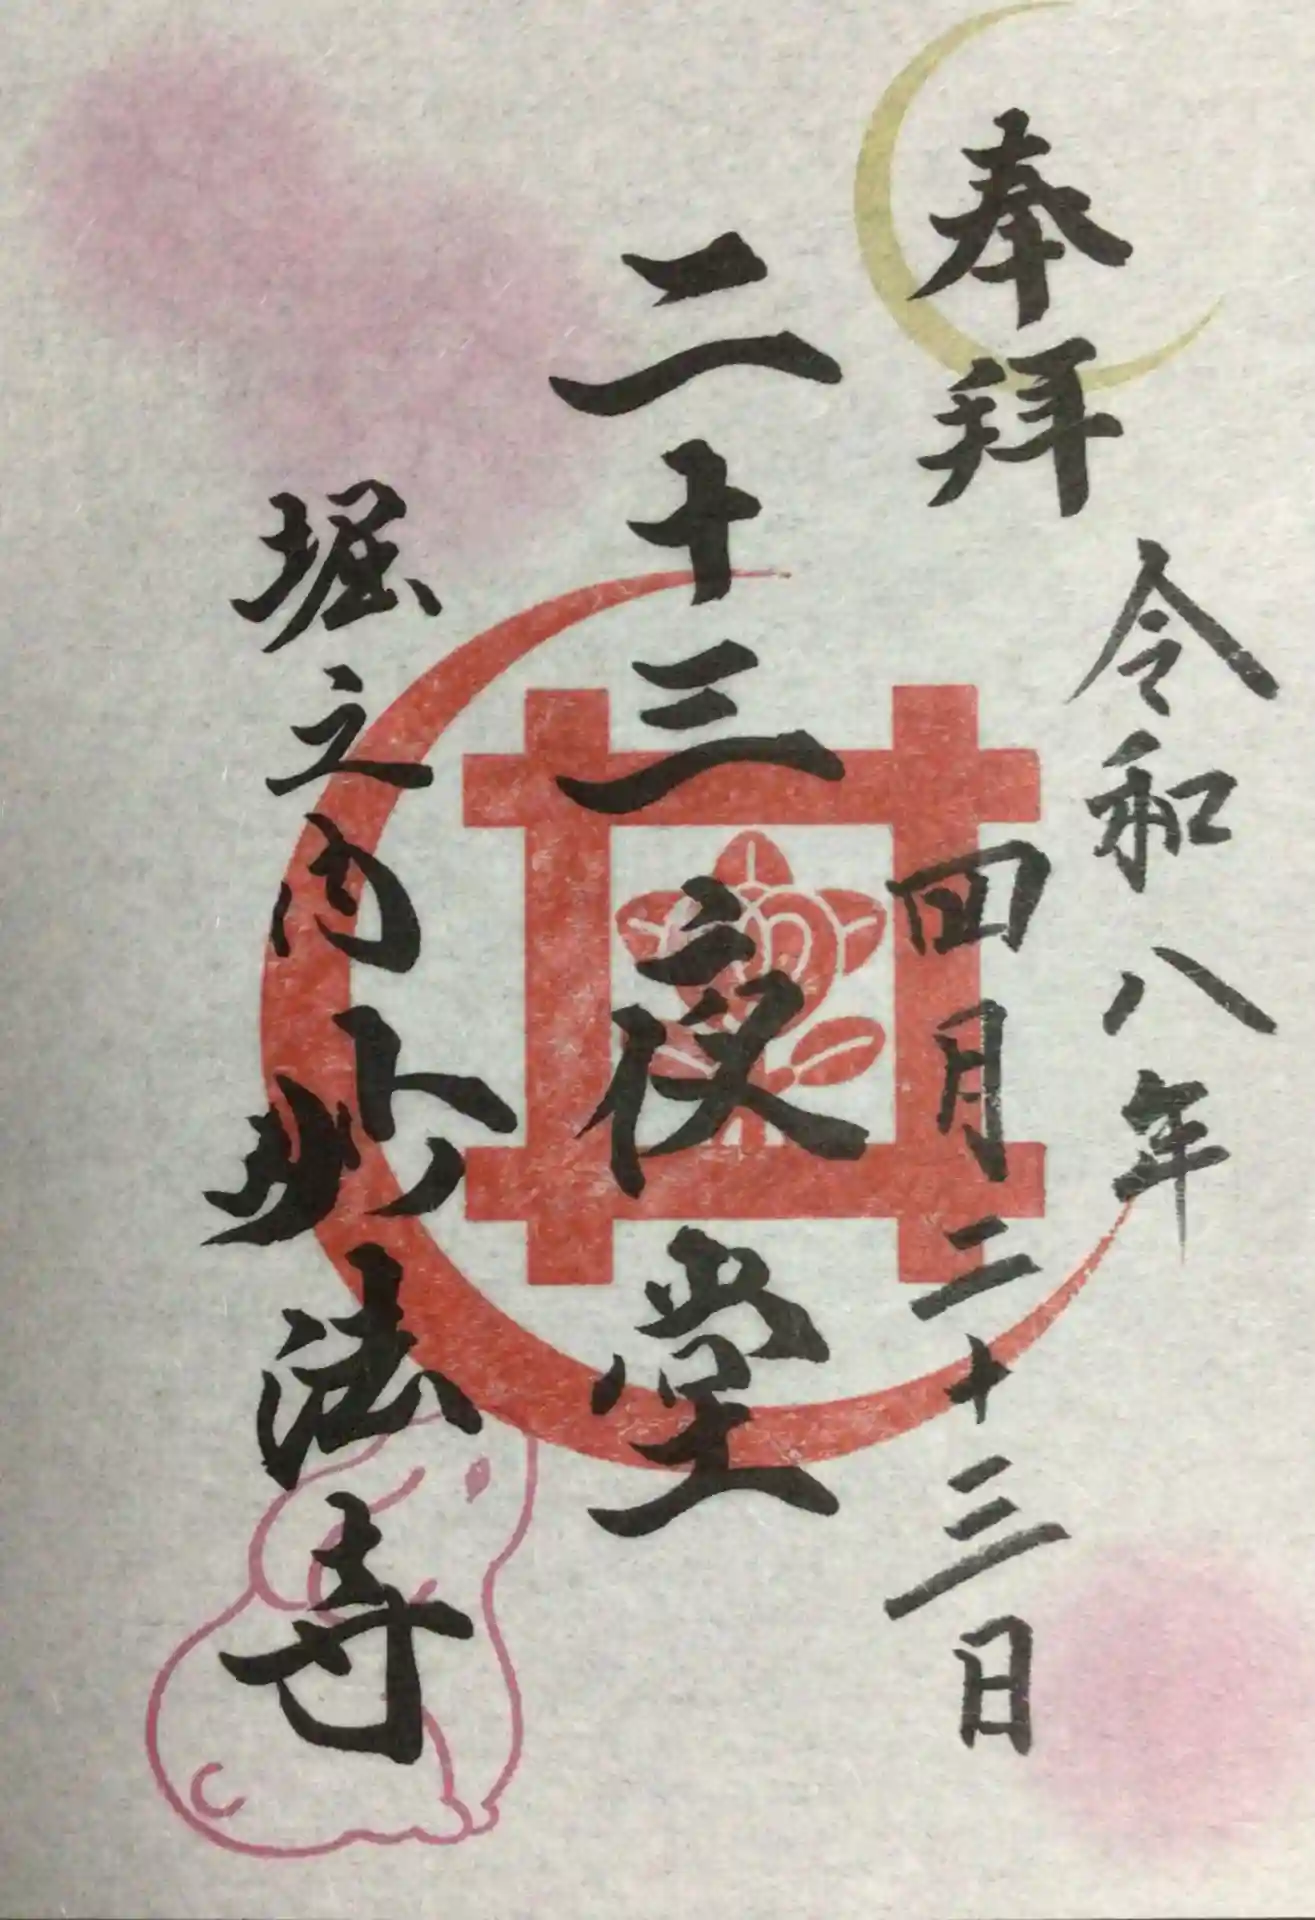 奉拝
令和八年
四月二十三日
二十三夜堂
堀之内妙法寺